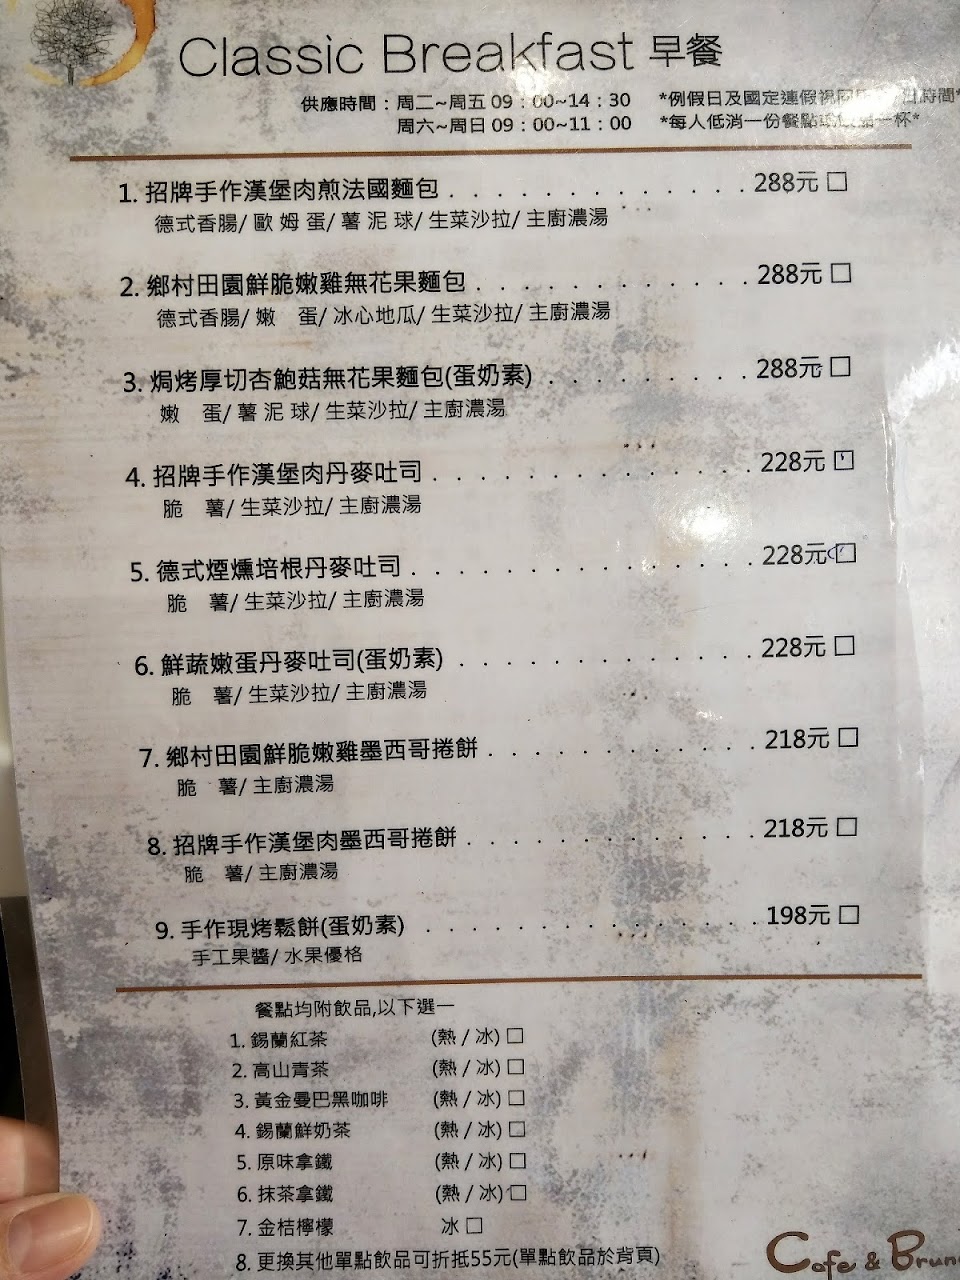 Classic Breakfast 早餐
供應時間：周二~周五 09：00~14：30 *例假日及國定連假視同 時間*
周六~周日 09：00~11：00 *每人低消一份餐點 一杯*
1. 招牌手作漢堡肉煎法國麵包 . . . . . . . . . . . . . 288元 □
德式香腸/ 歐 姆 蛋/ 薯 泥 球/ 生菜沙拉/ 主廚濃湯
2. 鄉村田園鮮脆嫩雞無花果麵包 . . . . . . . . . . . . 288元 □
德式香腸/ 嫩 蛋/ 冰心地瓜/ 生菜沙拉/ 主廚濃湯
3. 焗烤厚切杏鮑菇無花果麵包(蛋奶素) . . . . . . . . . 288元 □
嫩 蛋/ 薯 泥 球/ 生菜沙拉/ 主廚濃湯
4. 招牌手作漢堡肉丹麥吐司 . . . . . . . . . . . . . . 228元 □
脆 薯/ 生菜沙拉/ 主廚濃湯
5. 德式煙燻培根丹麥吐司 . . . . . . . . . . . . . . . 228元 □
脆 薯/ 生菜沙拉/ 主廚濃湯
6. 鮮蔬嫩蛋丹麥吐司(蛋奶素) . . . . . . . . . . . . . 228元 □
脆 薯/ 生菜沙拉/ 主廚濃湯
7. 鄉村田園鮮脆嫩雞墨西哥捲餅 . . . . . . . . . . . . 218元 □
脆 薯/ 主廚濃湯
8. 招牌手作漢堡肉墨西哥捲餅 . . . . . . . . . . . . . 218元 □
脆 薯/ 主廚濃湯
9. 手作現烤鬆餅(蛋奶素) . . . . . . . . . . . . . . 198元 □
手工果醬/ 水果優格
餐點均附飲品,以下選一
1. 錫蘭紅茶 (熱 / 冰) □
2. 高山青茶 (熱 / 冰) □
3. 黃金曼巴黑咖啡 (熱 / 冰) □
4. 錫蘭鮮奶茶 (熱 / 冰) □
5. 原味拿鐵 (熱 / 冰) □
6. 抹茶拿鐵 (熱 / 冰) □
7. 金桔檸檬 冰 □
8. 更換其他單點飲品可折抵55元(單點飲品於背頁)
Cafe & Brun